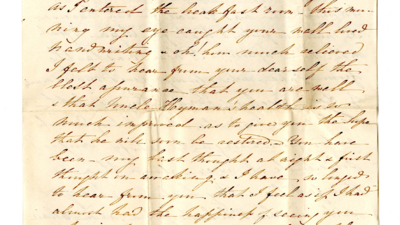 as I entered the breakfast room this mor-
ning my eye caught your well lined
handwriting - oh! how much relieved
I felt to hear from your dear self the
blest assurance that you are well
& that Uncle Hyman's health is so
much improved, as to give you the hope
that he will soon be restored. You have
been my last thought at night & first
thought on waking, & I have so longed
to hear from you that I feel as if I had
almost had the happiness of seeing you